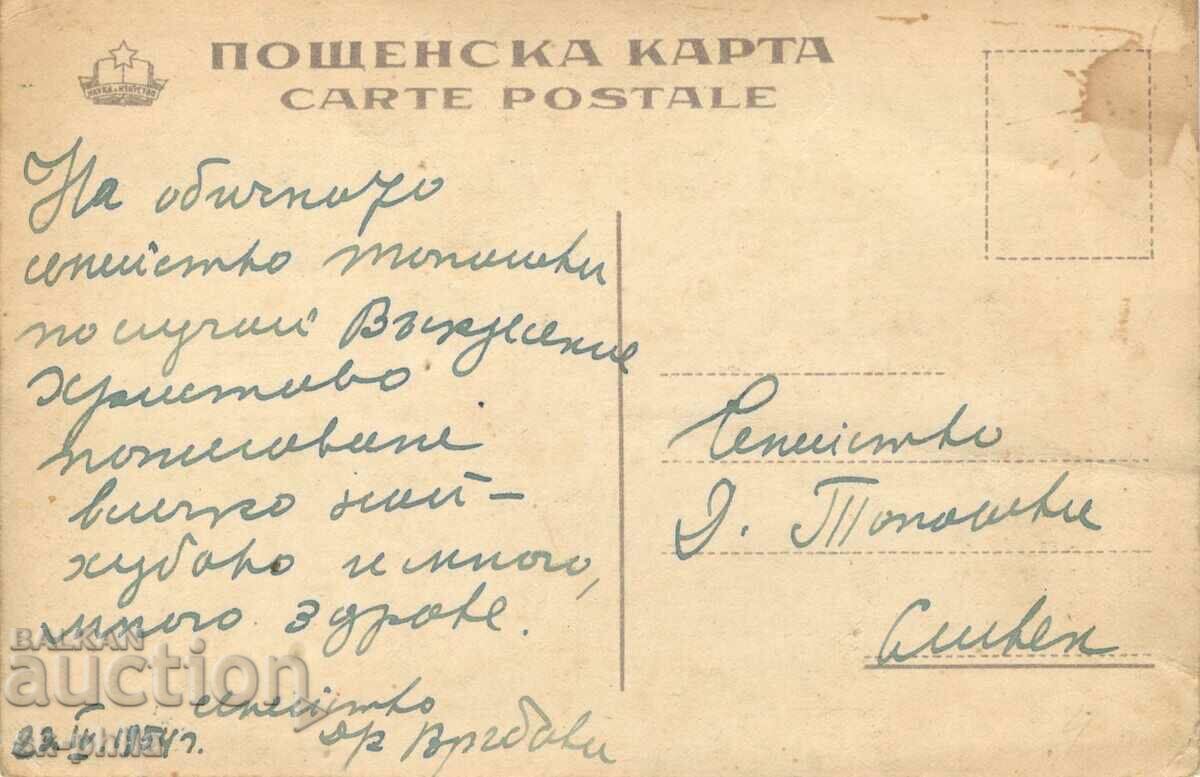 ПОЩЕНСКА КАРТА
CARTE POSTALE
НАУКА И ИЗКУСТВО
На обичното
семейство Топашеви
по случай Възкресение
Христово
пожелаваме
всичко най-
хубаво и много,
много здраве.
семейство
др
1954 г.
Семейство
Д. Топашеви
Сливен
BALKAN
auction